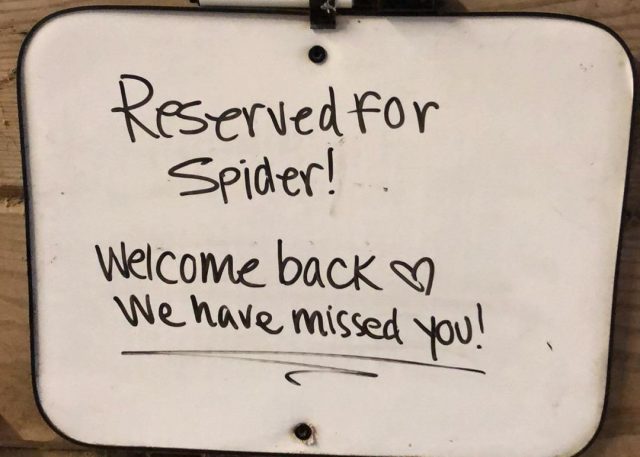 Reserved for
Spider!
Welcome back ♡
We have missed you!